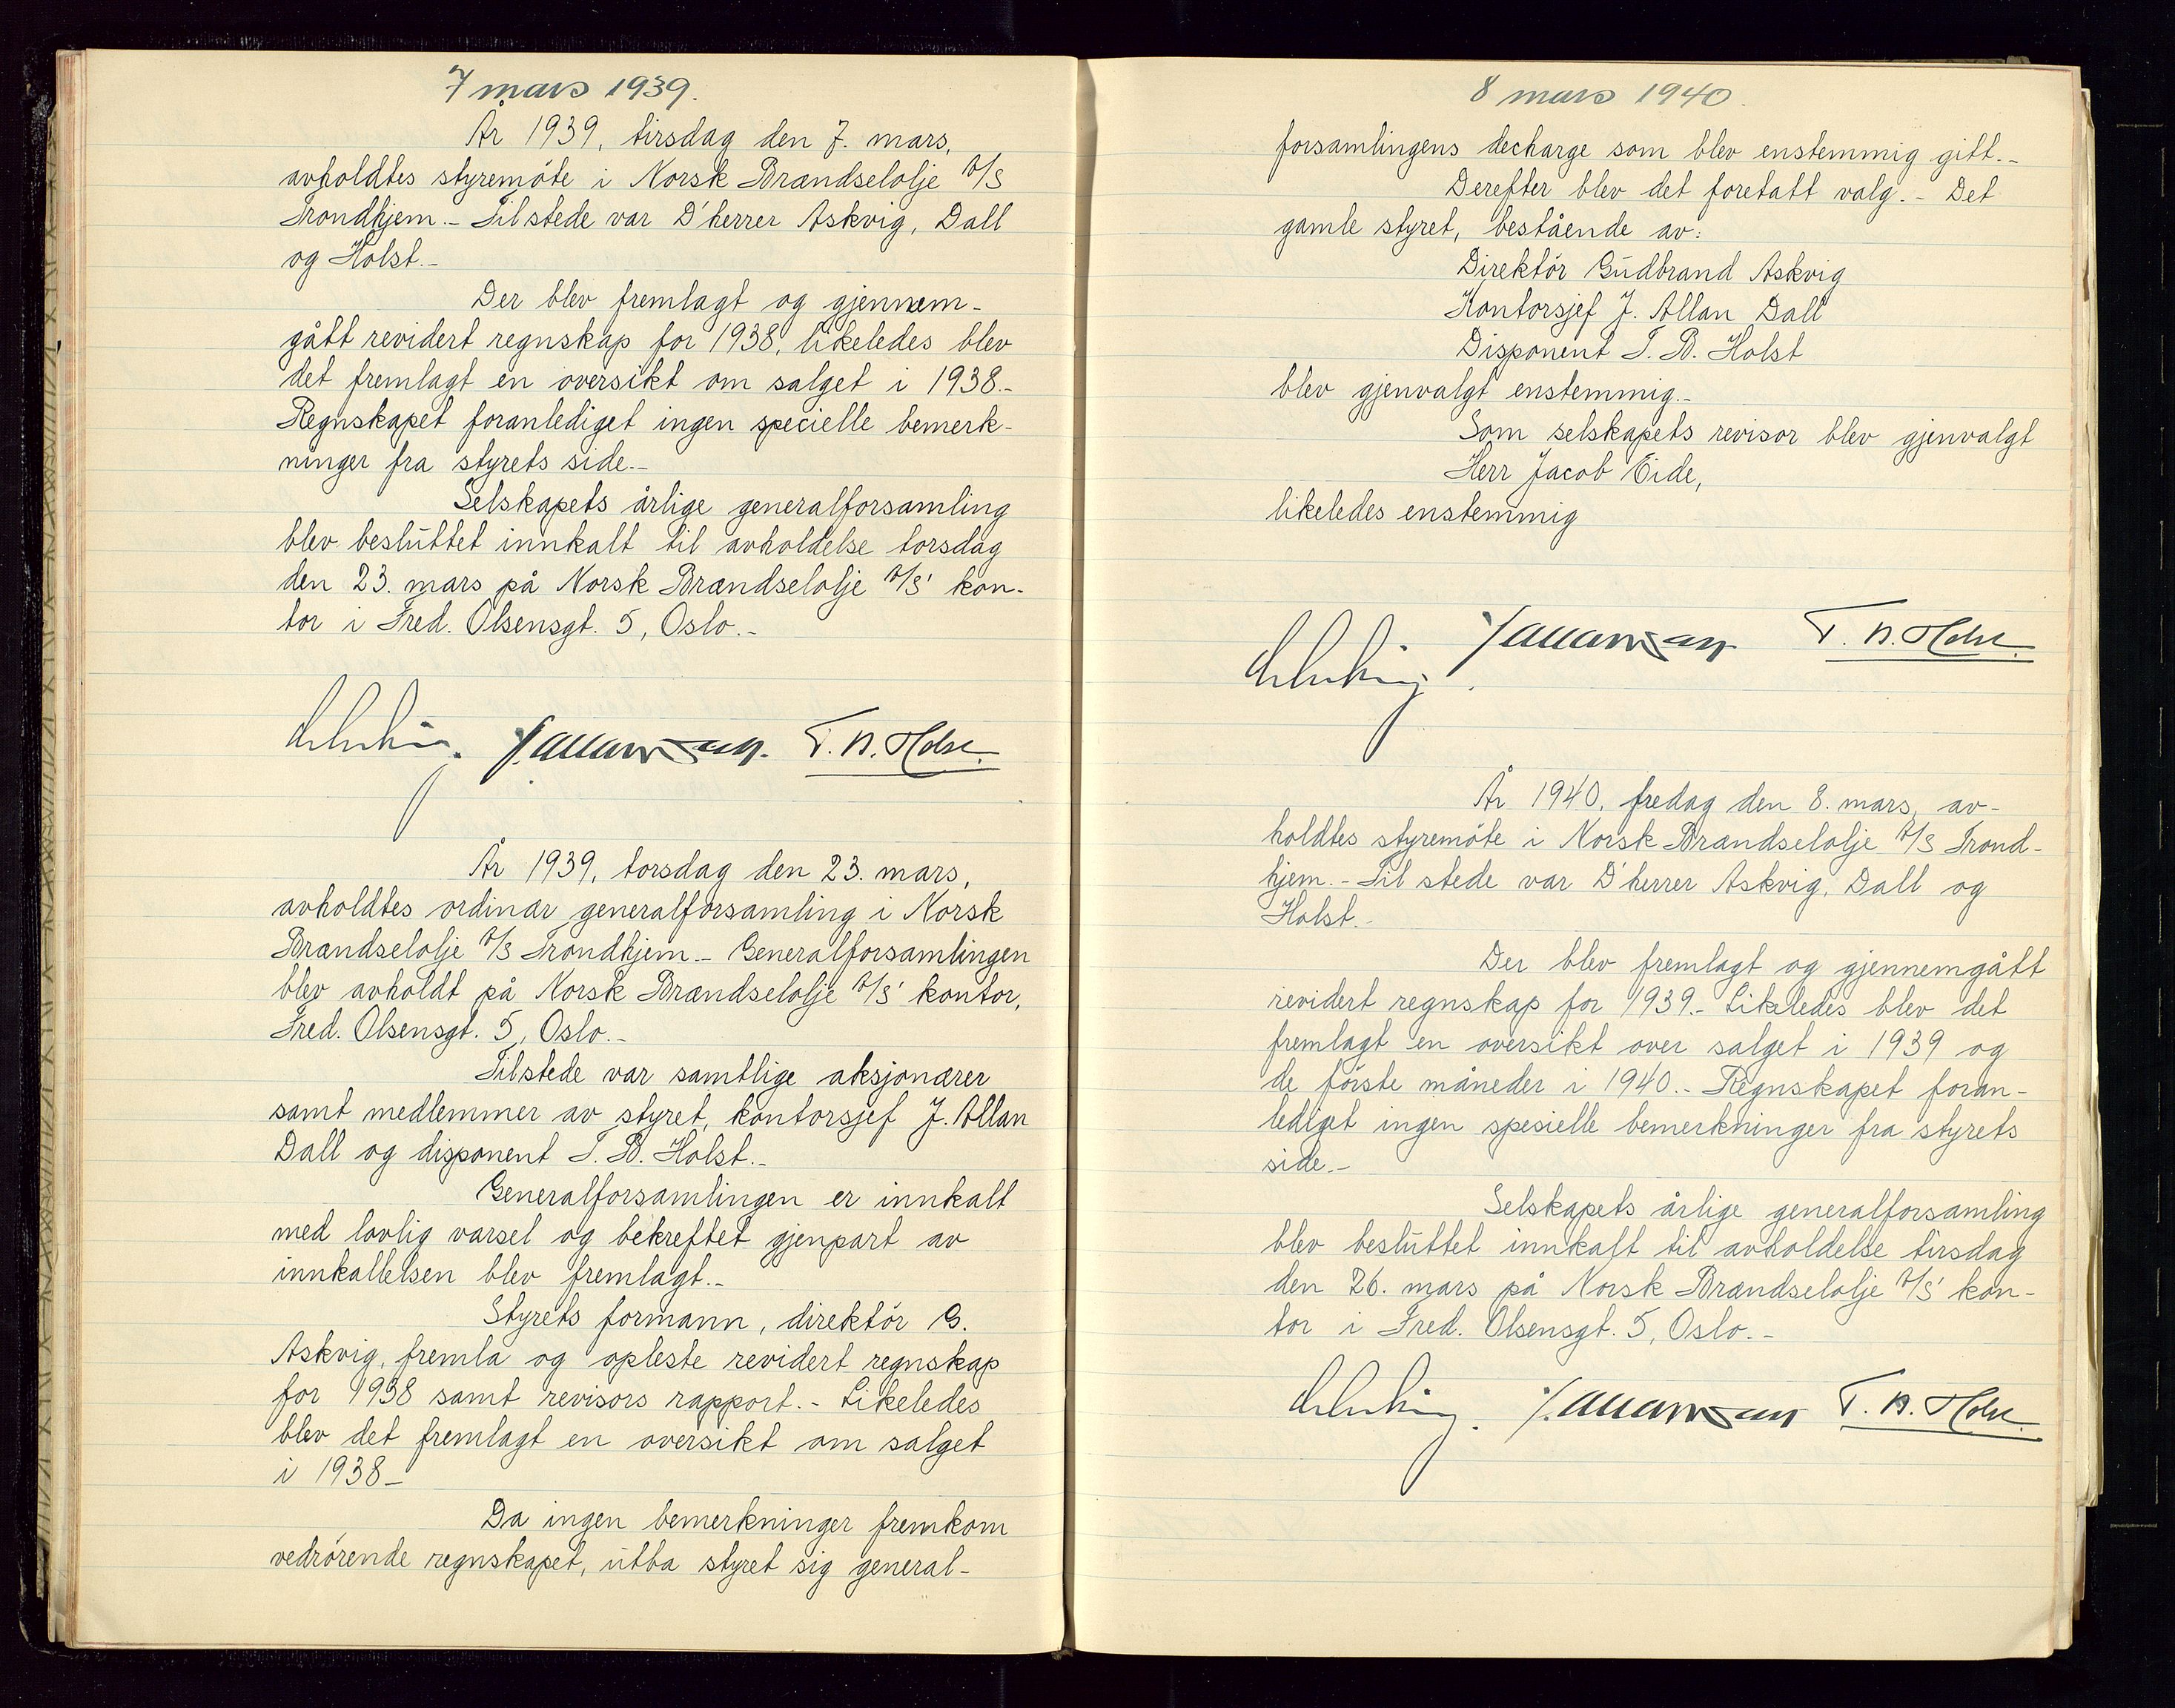 7 mars 1939.
År 1939, tirsdag den 7. mars,
avholdtes styremöte i Norsk Brændselolje A/S
Trondhjem.- Tilstede var D'herrer Askvig, Dall
og Holst.-
Der blev fremlagt og gjennem-
gått revidert regnskap for 1938, likeledes blev
det fremlagt en oversikt om salget i 1938.-
Regnskapet foranlediget ingen specielle bemerk-
ninger fra styrets side.-
Selskapets årlige generalforsamling
blev besluttet innkalt til avholdelse torsdag
den 23. mars på Norsk Brændselolje A/S' kon-
tor i Fred. Olsensgt. 5, Oslo.-
J. Allan Dall. T. B. Holst.
År 1939, torsdag den 23. mars,
avholdtes ordinær generalforsamling i Norsk
Brændselolje A/S Trondhjem.- Generalforsamlingen
blev avholdt på Norsk Brændselolje A/S' kontor,
Fred. Olsensgt. 5, Oslo.-
Tilstede var samtlige aksjonærer
samt medlemmer av styret, kontorsjef J. Allan
Dall og disponent T. B. Holst.-
Generalforsamlingen er innkalt
med lovlig varsel og bekreftet gjenpart av
innkallelsen blev fremlagt.-
Styrets formann, direktör G.
Askvig, fremla og opleste revidert regnskap
for 1938 samt revisors rapport.- Likeledes
blev det fremlagt en oversikt om salget
i 1938-
Da ingen bemerkninger fremkom
vedrörende regnskapet, utba styret sig general-
8 mars 1940.
forsamlingens decharge som blev enstemmig gitt.-
Derefter blev det foretatt valg.- Det
gamle styret, bestående av:
Direktör Gudbrand Askvig
Kontorsjef J. Allan Dall
Disponent T. B. Holst
blev gjenvalgt enstemmig.-
Som selskapets revisor blev gjenvalgt
Herr Jacob Eide,
likeledes enstemmig
J. Allan Dall T. B. Holst.
År 1940, fredag den 8. mars, av-
holdtes styremöte i Norsk Brændselolje A/S Trond-
hjem.- Til stede var D'herrer Askvig, Dall og
Holst.-
Der blev fremlagt og gjennemgått
revidert regnskap for 1939.- Likeledes blev det
fremlagt en oversikt over salget i 1939 og
de förste måneder i 1940.- Regnskapet foran-
lediget ingen spesielle bemerkninger fra styrets
side.-
Selskapets årlige generalforsamling
blev besluttet innkalt til avholdelse tirsdag
den 26. mars på Norsk Brændselolje A/S' kon-
tor i Fred. Olsensgt. 5, Oslo.-
J. Allan Dall T. B. Holst.